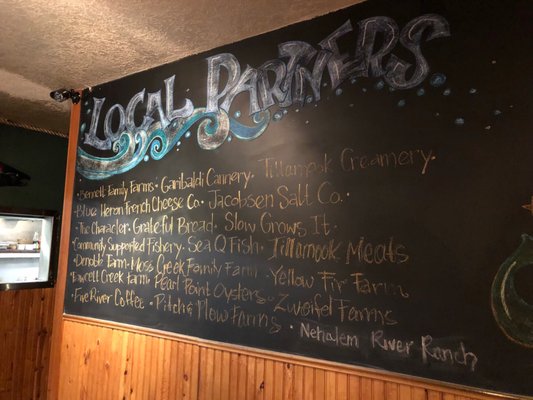 Local Partners
Bennett Family Farms · Garibaldi Cannery · Tillamook Creamery ·
· Blue Heron French Cheese Co. · Jacobsen Salt Co. ·
· The Character · Grateful Bread · Slow Grows It ·
· Community Supported Fishery · Sea Q Fish · Tillamook Meats
· Farm · Moss Creek Family Farm · Yellow Fir Farm ·
· Fawcett Creek Farm · Pearl Point Oysters · Zweifel Farms
· Five River Coffee · Pitch & Plow Farms ·
· Nehalem River Ranch ·